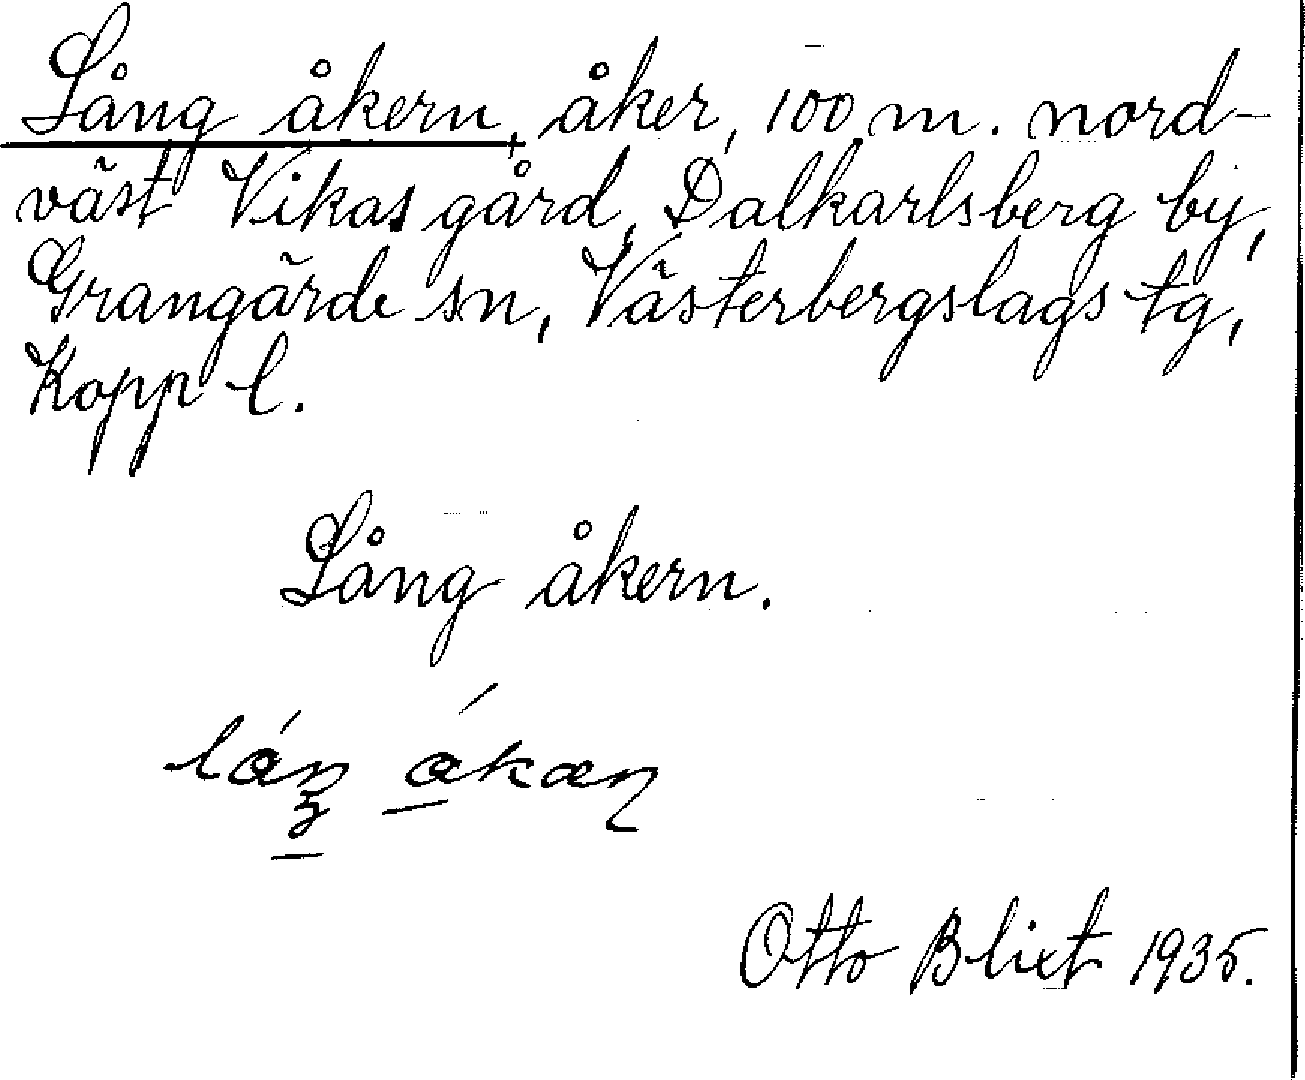 Lång åkern, åker, 100 m. nord-
väst Vikas gård, Dalkarlsberg by,
Grangärde sn, Västerbergslags tg,
Kopp l.
Lång åkern.
Otto Blixt 1935.